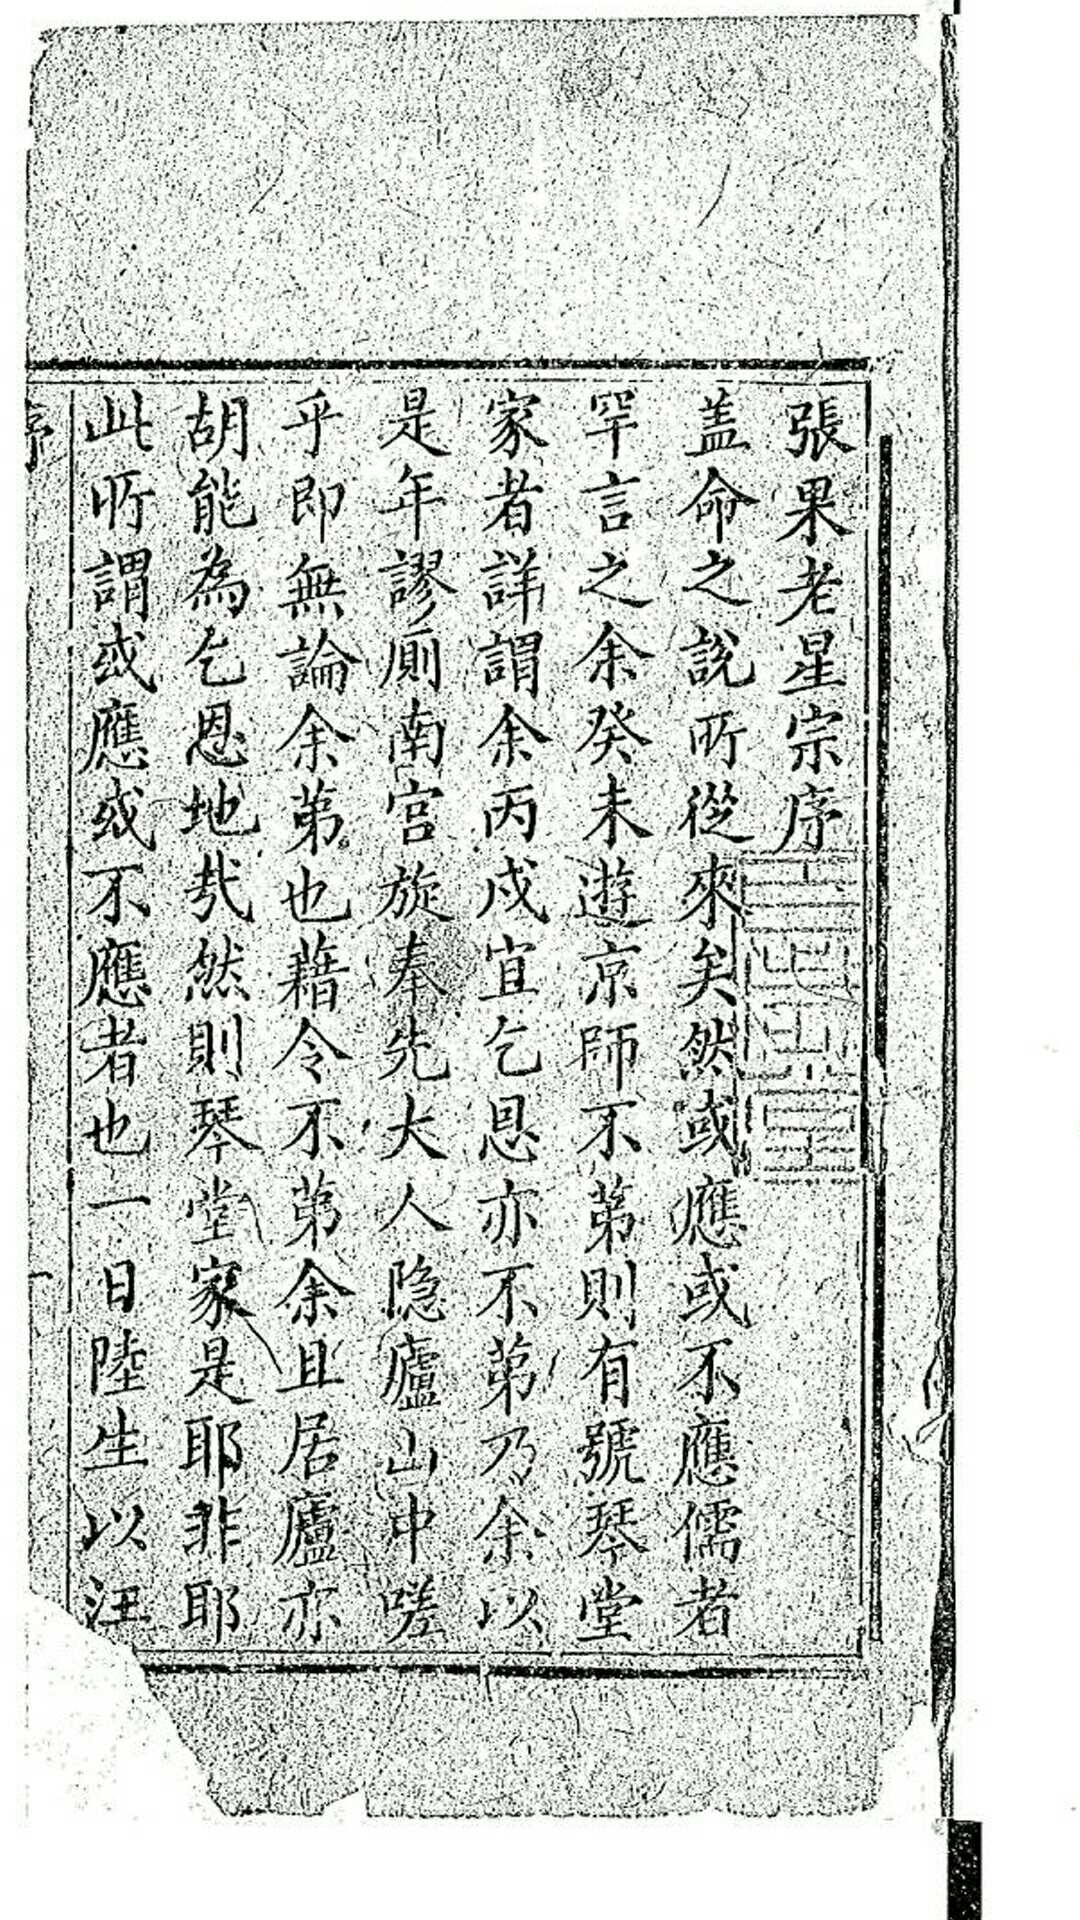 張果老星宗序
盖命之說所從來矣然或應或不應儒者
罕言之余癸未遊京師不第則有號琴堂
家者詳謂余丙戌宜乞恩亦不第乃余以
是年謬厠南宫旋奉先大人隐廬山中嗟
乎即無論余第也藉令不第余且居廬亦
胡能為乞恩地㢤然則琴堂家是耶非耶
此所謂或應或不應者也一日陸生以汪
序